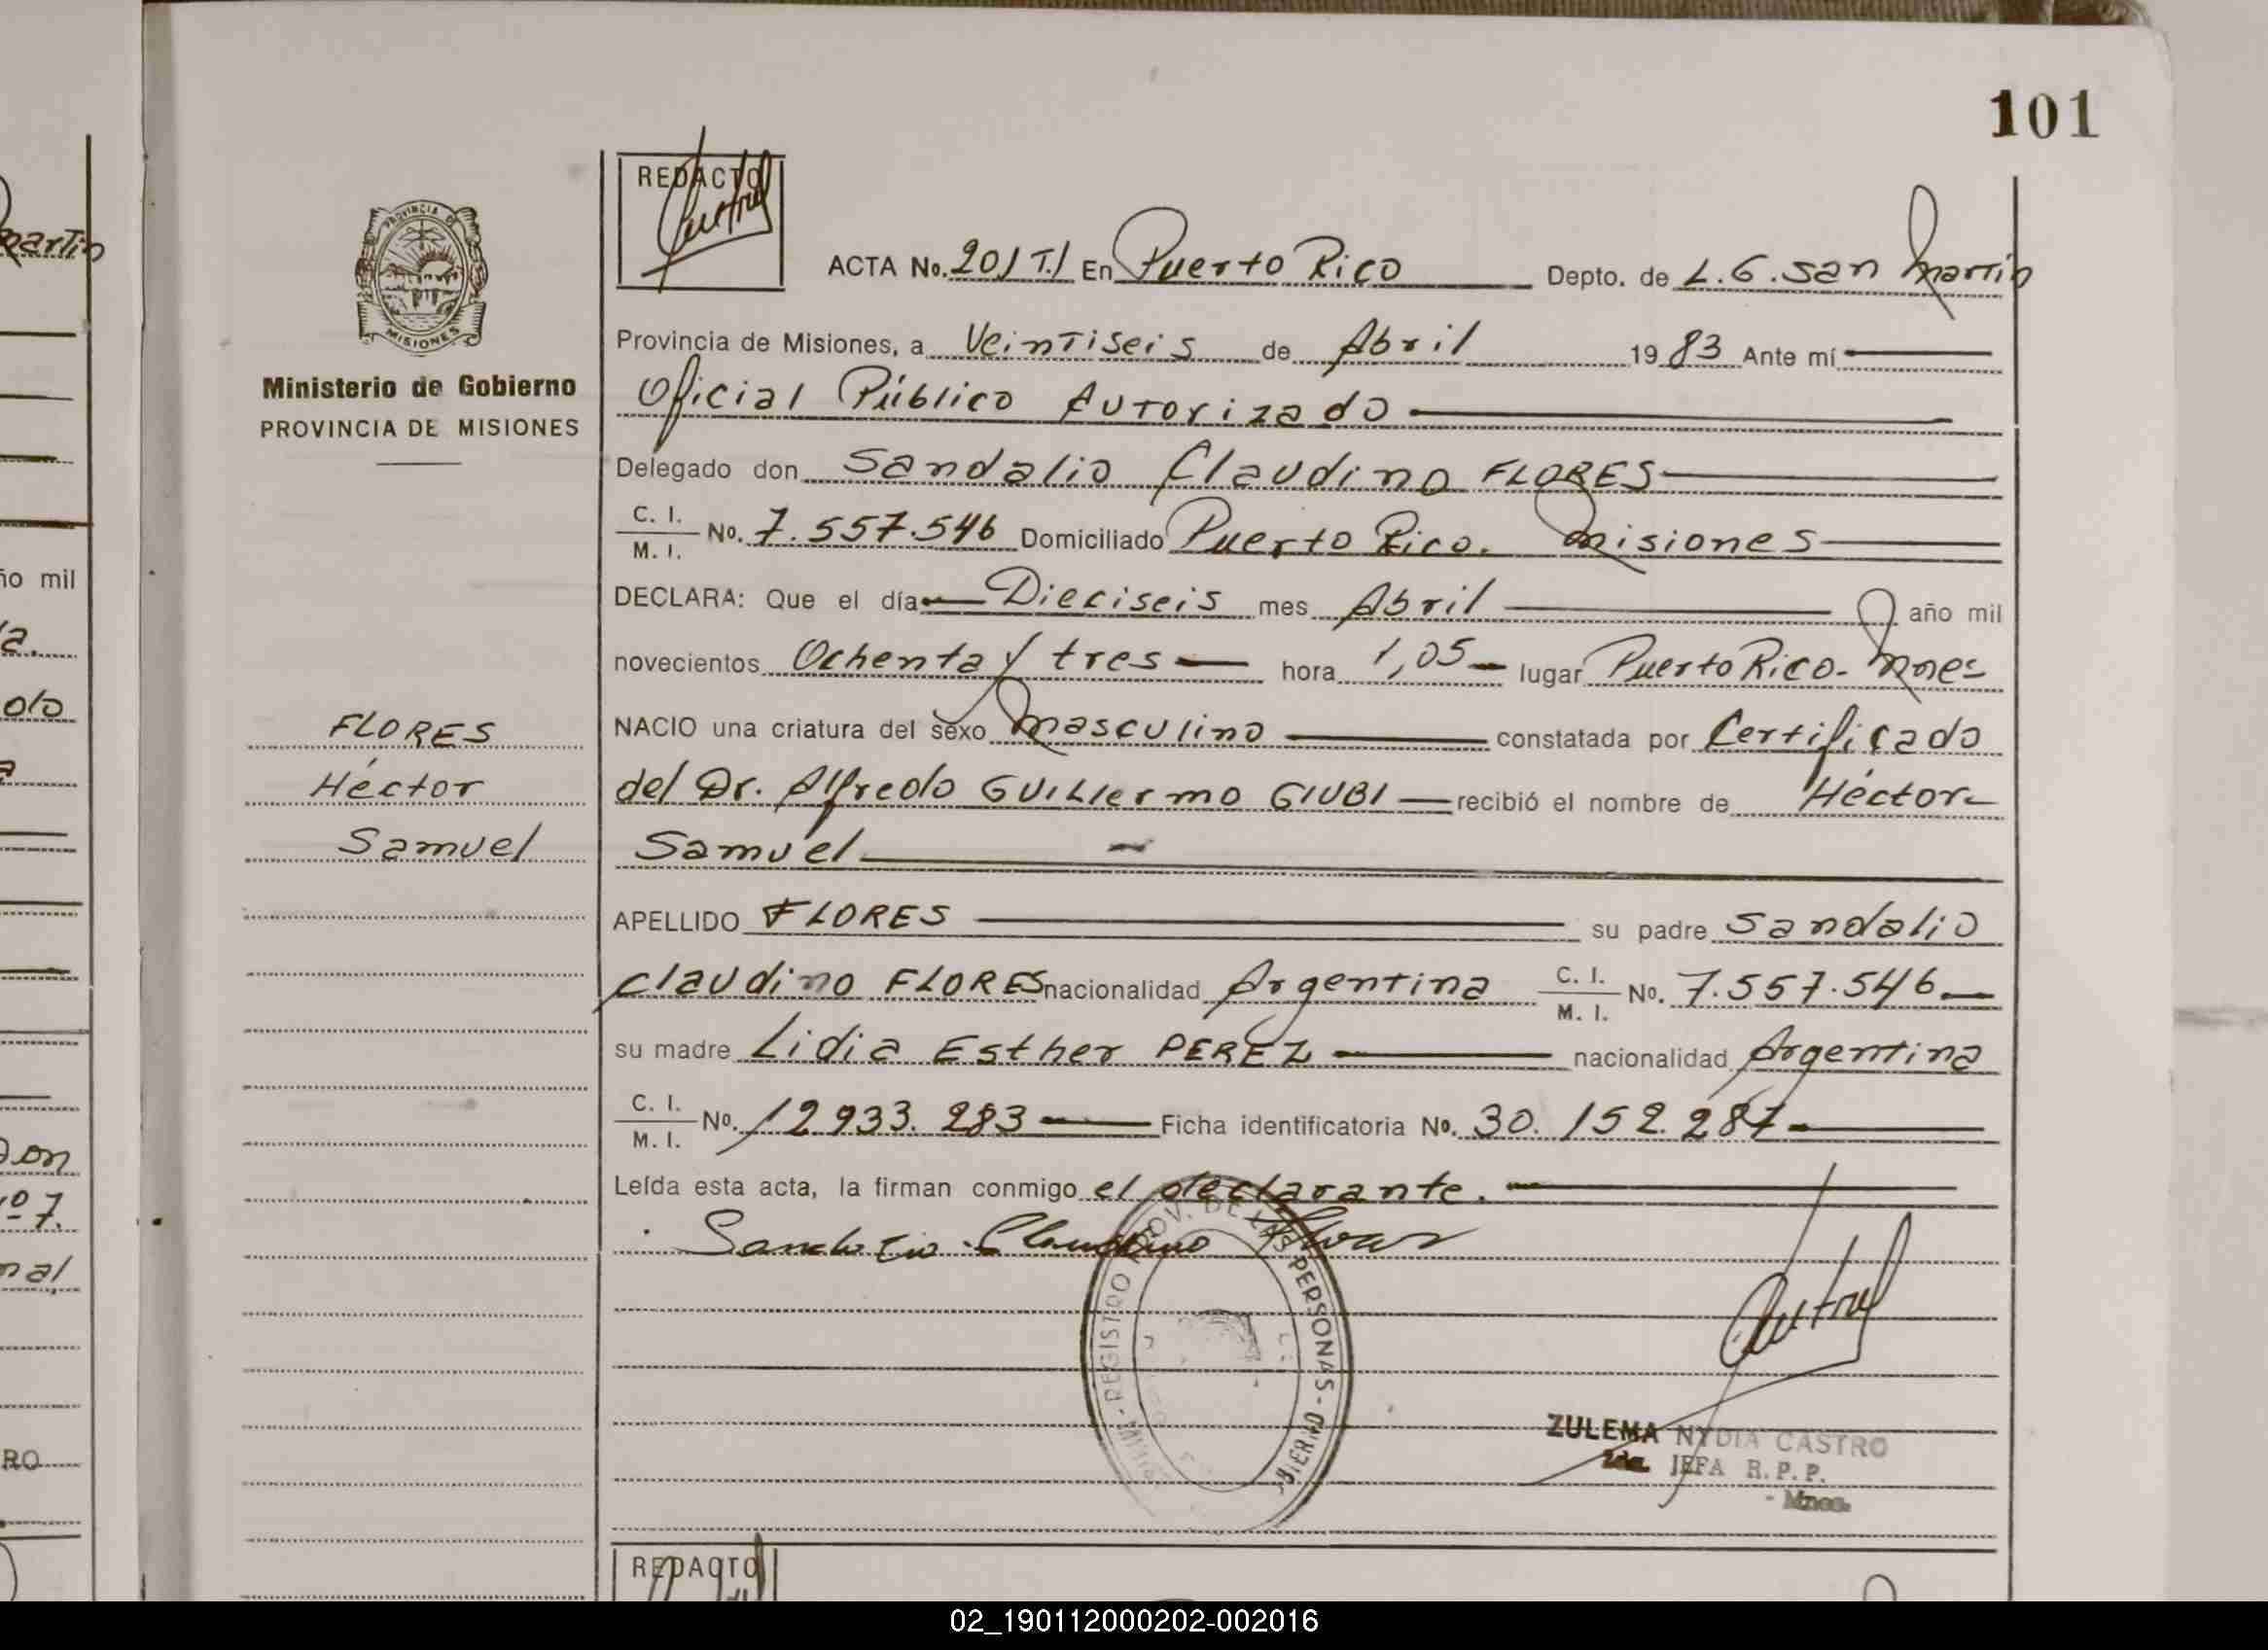 101
REDACTO
ACTA No. 201 T.I En Puerto Rico Depto. de L.G. San Martín
Provincia de Misiones, a Veintiseis de Abril 1983 Ante mí
Oficial Público Autorizado
Delegado don Sandalio Claudino FLORES
C. I. / M. I. No. 7.557.546 Domiciliado Puerto Rico. Misiones
DECLARA: Que el día Dieciseis mes Abril año mil
novecientos Ochenta y tres hora 1,05 lugar Puerto Rico - Mnes
NACIO una criatura del sexo Masculino constatada por Certificado
del Dr. Alfredo GUILLermo GIUBI recibió el nombre de Héctor
Samuel
APELLIDO FLORES su padre Sandalio
Claudino FLORES nacionalidad Argentina C. I. / M. I. No. 7.557.546
su madre Lidia Esther PEREZ nacionalidad Argentina
C. I. / M. I. No. 12933.283 Ficha identificatoria No. 30.152.287
Leída esta acta, la firman conmigo el declarante.
Sandalio Claudino Flores
REGISTRO PROV. DE LAS PERSONAS
ZULEMA NYDIA CASTRO
2da. JEFA R. P. P.
- Mnes.
REDACTO
PROVINCIA DE
MISIONES
Ministerio de Gobierno
PROVINCIA DE MISIONES
FLORES
Héctor
Samuel
martín
ño mil
nal
RO
02_190112000202-002016